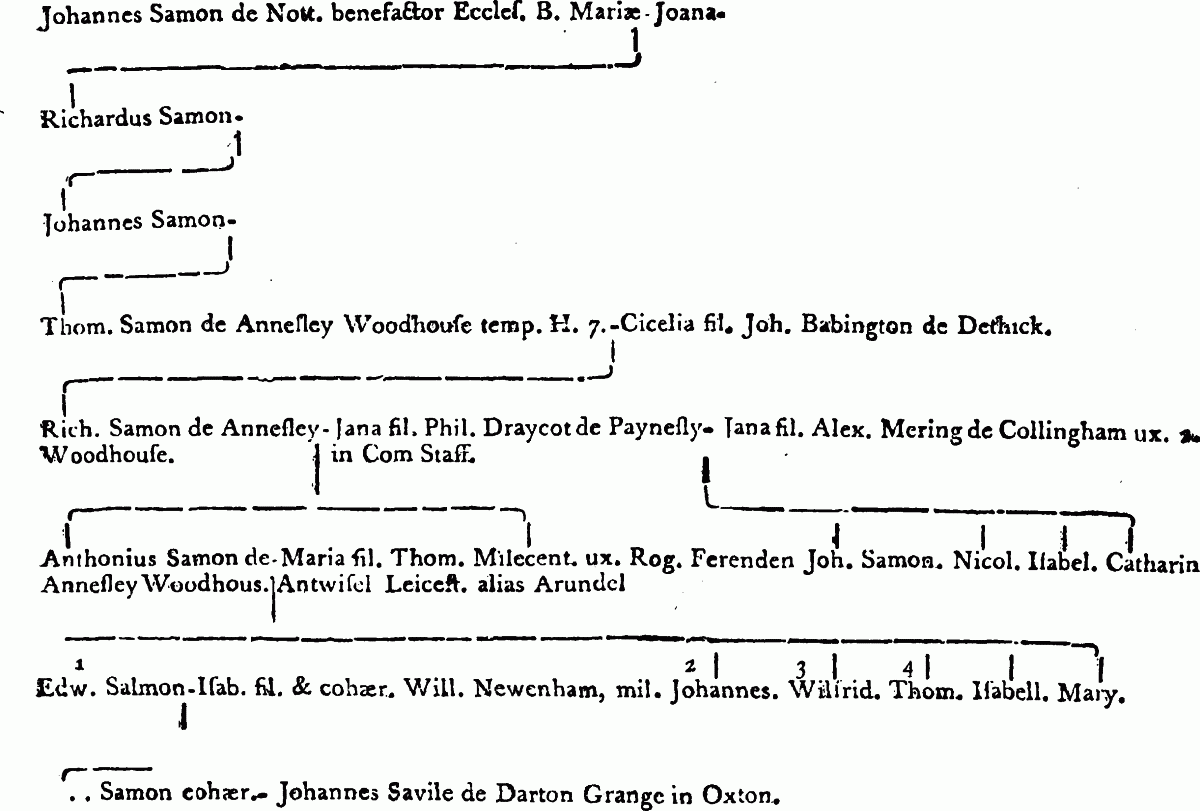 Johannes Samon de Nott. benefactor Eccleſ. B. Mariæ - Joana-
Richardus Samon-
Johannes Samon-
Thom. Samon de Anneſley Woodhouſe temp. H. 7.-Cicelia fil. Joh. Babington de Dethick.
Rich. Samon de Anneſley- Jana fil. Phil. Draycot de Paynefly- Jana fil. Alex. Mering de Collingham ux. 2.
Woodhouſe. in Com Staff.
Anthonius Samon de-Maria fil. Thom. Milecent. ux. Rog. Ferenden Joh. Samon. Nicol. Iſabel. Catharin
Anneſley Woodhous. Antwiſel Leiceſt. alias Arundel
1 2 3 4
Edw. Salmon-Iſab. fil. & cohær. Will. Newenham, mil. Johannes. Wilfrid. Thom. Iſabell. Mary.
. . Samon cohær.- Johannes Savile de Darton Grange in Oxton.